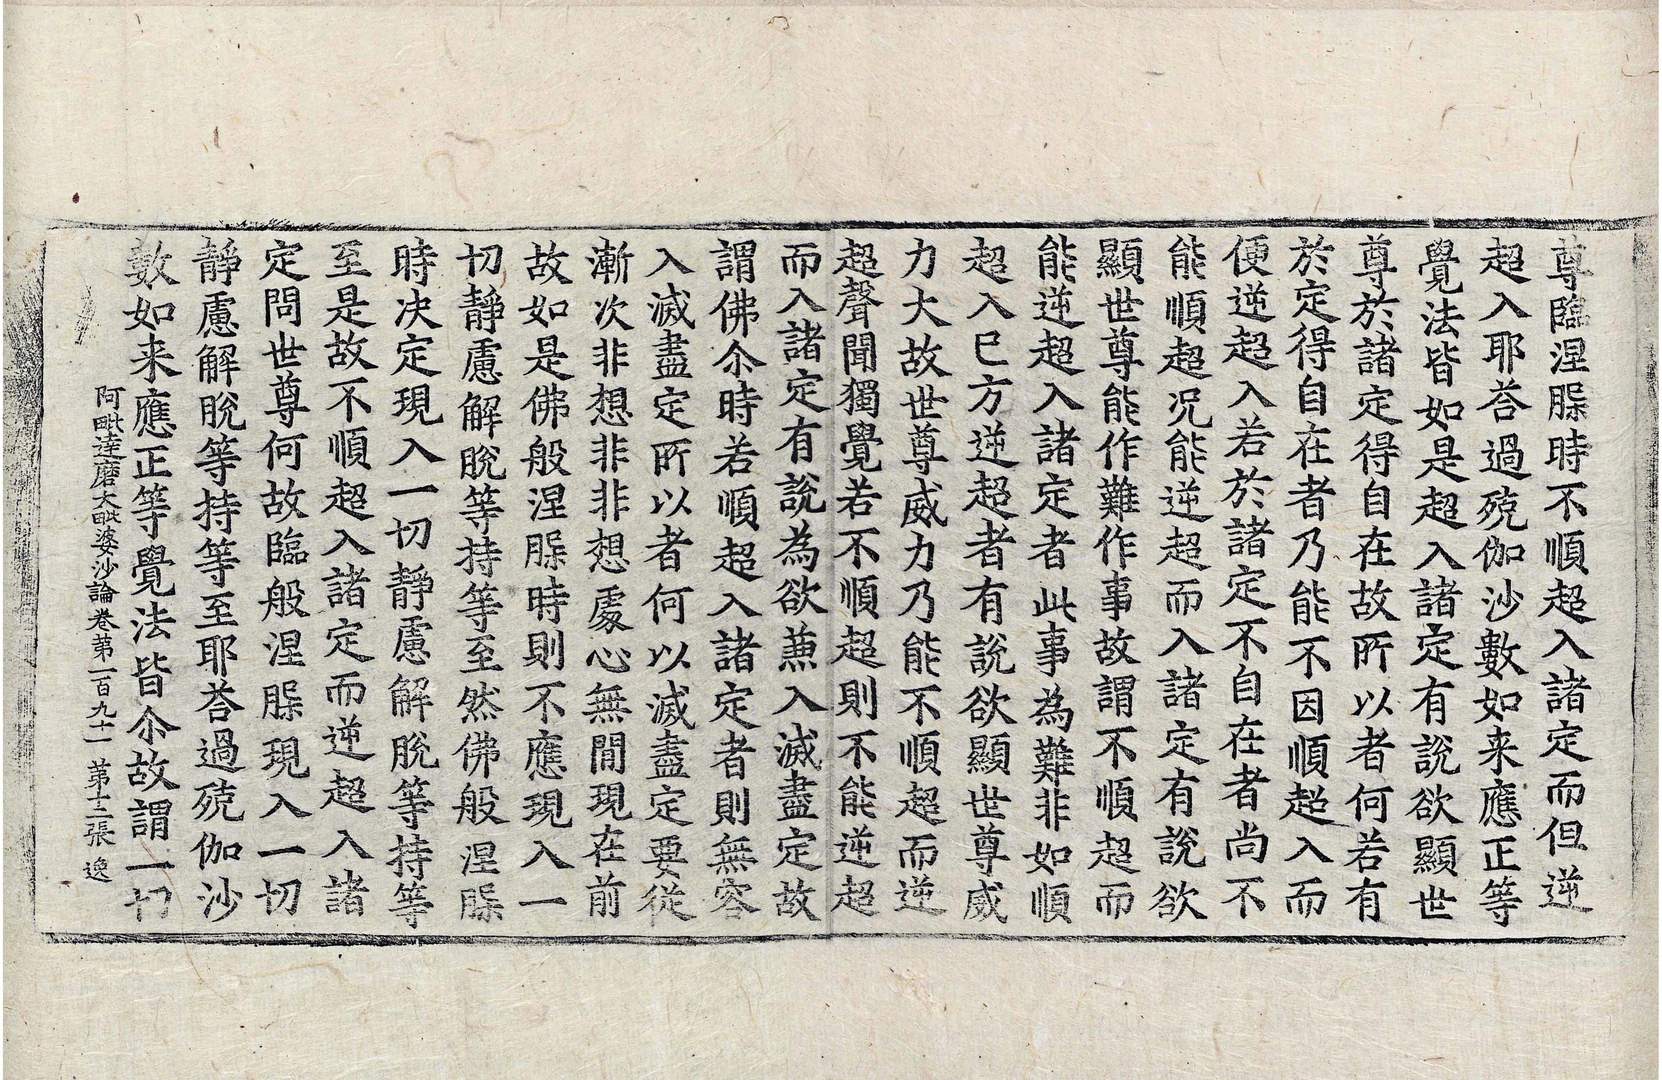 尊臨涅槃時不順超入諸定而但逆
超入耶荅過殑伽沙數如来應正等
覺法皆如是超入諸定有說欲顯世
尊於諸定得自在故所以者何若有
於定得自在者乃能不因順超入而
便逆超入若於諸定不自在者尚不
能順超況能逆超而入諸定有說欲
顯世尊能作難作事故謂不順超而
能逆超入諸定者此事為難非如順
超入已方逆超者有說欲顯世尊威
力大故世尊威力乃能不順超而逆
超聲聞獨覺若不順超則不能逆超
而入諸定有說為欲蕉入滅盡定故
謂佛尒時若順超入諸定者則無容
入滅盡定所以者何以滅盡定要從
漸次非想非非想處心無間現在前
故如是佛般涅槃時則不應現入一
切靜慮解脫等持等至然佛般涅槃
時決定現入一切靜慮解脫等持等
至是故不順超入諸定而逆超入諸
定問世尊何故臨般涅槃現入一切
靜慮解脫等持等至耶荅過殑伽沙
數如来應正等覺法皆尒故謂一切
阿毗達磨大毗婆沙論卷苐一百九十一 苐十三張 逸